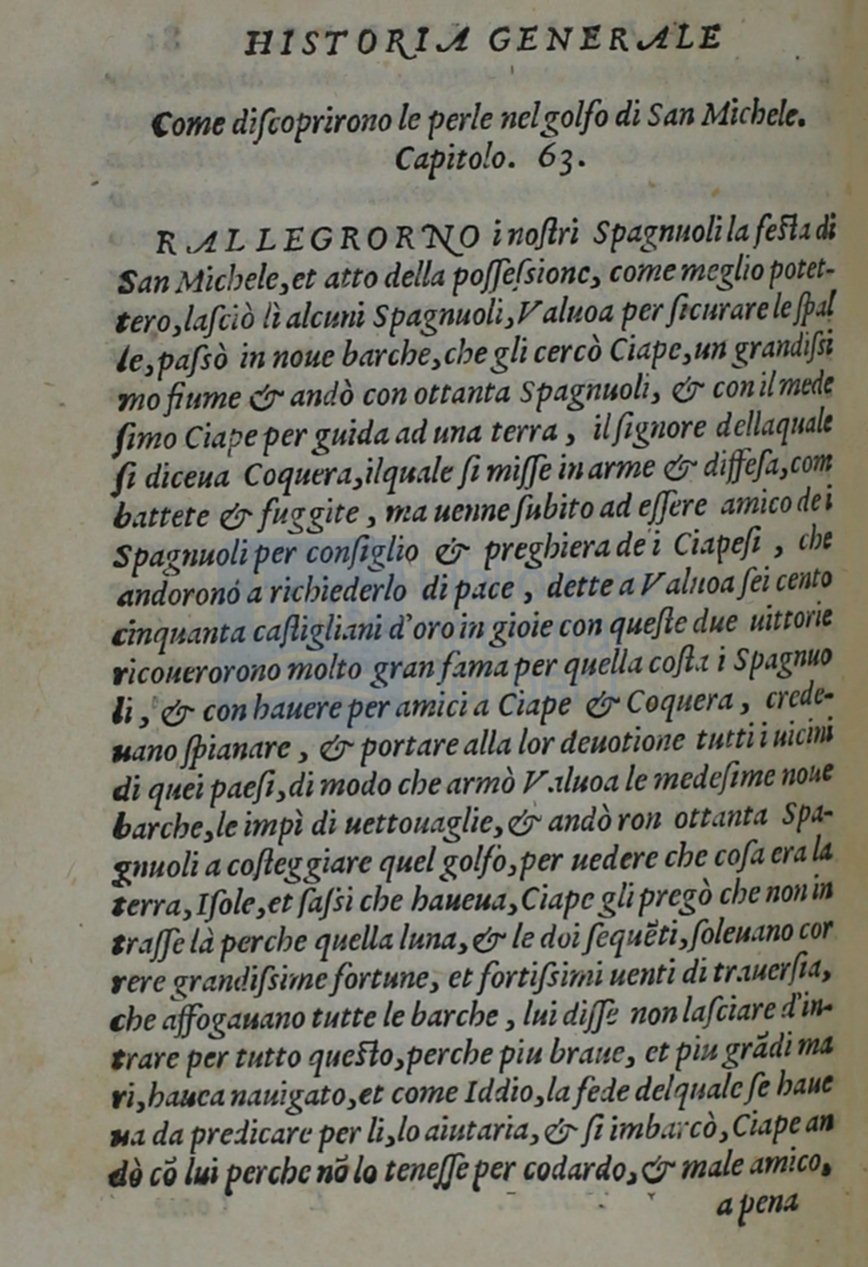 HISTORIA GENERALE
Come diſcoprirono le perle nel golfo di San Michele.
Capitolo. 63.
RALLEGRORNO i noſtri Spagnuoli la feſta di
San Michele, et atto della poſſeſsione, come meglio potet-
tero, laſciò lì alcuni Spagnuoli, Valuoa per ſicurare le ſpal
le, paſsò in noue barche, che gli cercò Ciape, un grandiſsi
mo fiume & andò con ottanta Spagnuoli, & con il mede
ſimo Ciape per guida ad una terra, il ſignore dellaquale
ſi diceua Coquera, ilquale ſi miſſe in arme & diffeſa, com
battete & fuggite, ma uenne ſubito ad eſſere amico dei
Spagnuoli per conſiglio & preghiera de i Ciapeſi, che
andoronó a richiederlo di pace, dette a Valuoa ſei cento
cinquanta caſtigliani d'oro in gioie con queſte due uittorie
ricouerorono molto gran fama per quella coſta i Spagnuo
li, & con hauere per amici a Ciape & Coquera, crede-
uano ſpianare, & portare alla lor deuotione tutti i uicini
di quei paeſi, di modo che armò Valuoa le medeſime noue
barche, le impì di uettouaglie, & andò ron ottanta Spa-
gnuoli a coſteggiare quel golfo, per uedere che coſa era la
terra, Iſole, et ſaſsi che haueua, Ciape gli pregò che non in
traſſe là perche quella luna, & le doi ſequẽti, ſoleuano cor
rere grandiſsime fortune, et fortiſsimi uenti di trauerſia,
che affogauano tutte le barche, lui diſſe non laſciare d'in-
trare per tutto queſto, perche piu braue, et piu grãdi ma
ri, hauea nauigato, et come Iddio, la fede delquale ſe haue
ua da predicare per lì, lo aiutaria, & ſi imbarcò, Ciape an
dò cõ lui perche nõ lo teneſſe per codardo, & male amico,
a pena